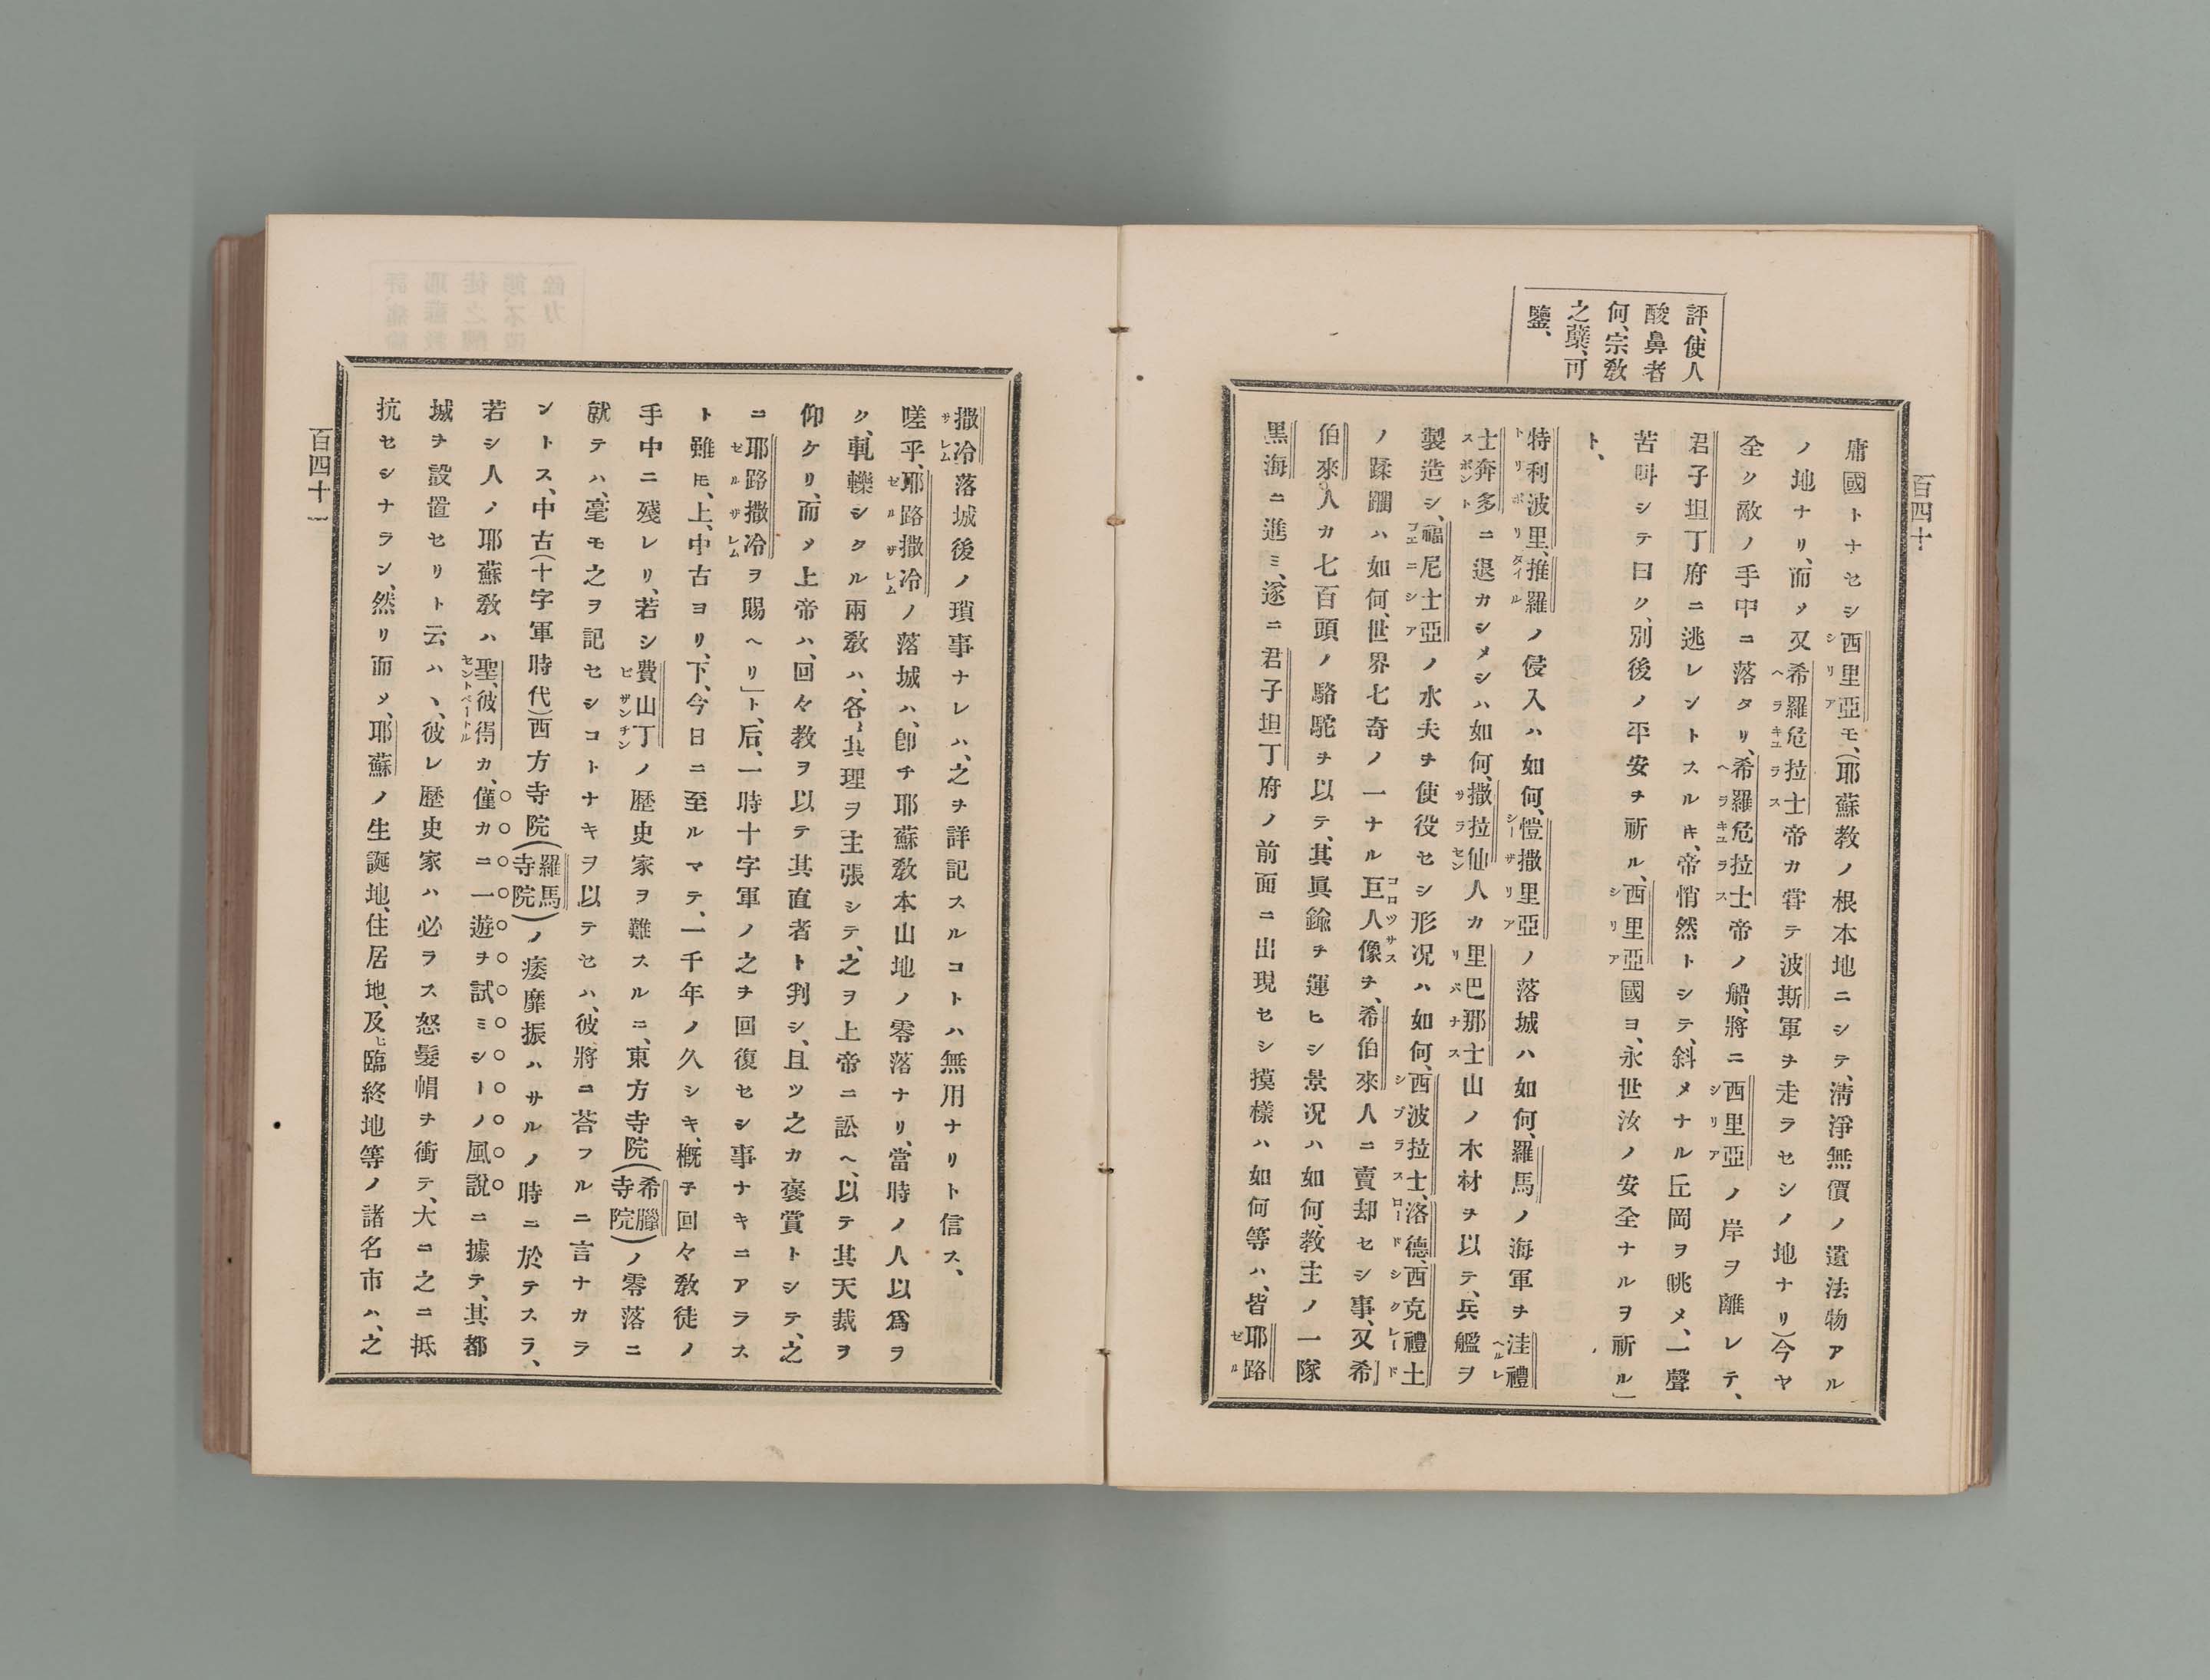 百四十
評、使人
酸鼻者
何、宗教
之蘗、可
鑒、
庸國トナセシ西里亞モ、(耶蘇教ノ根本地ニシテ、淸淨無價ノ遺法物アル
ノ地ナリ、而シテ又希羅危拉士帝カ甞テ波斯軍ヲ走ラセシノ地ナリ)今ヤ
全ク敵ノ手中ニ落タリ、希羅危拉士帝ノ船、將ニ西里亞ノ岸ヲ離レテ、
君子坦丁府ニ逃レントスルキ、帝悄然トシテ、斜メナル丘岡ヲ眺メ、一聲
苦呌シテ曰ク、別後ノ平安ヲ祈ル、西里亞國ヨ、永世汝ノ安全ナルヲ祈ル」
ト、
特利波里、推羅ノ侵入ハ如何、愷撒里亞ノ落城ハ如何、羅馬ノ海軍ヲ洼禮
士奔多ニ退カシメシハ如何、撒拉仙人カ里巴那士山ノ木材ヲ以テ、兵艦ヲ
製造シ、福尼士亞ノ水夫ヲ使役セシ形况ハ如何、西波拉士、洛德、西克禮土
ノ蹂躙ハ如何、世界七奇ノ一ナル巨人像ヲ、希伯來人ニ賣却セシ事、又希
伯來人カ七百頭ノ駱駝ヲ以テ、其眞鍮ヲ運ヒシ景况ハ如何、教主ノ一隊
黑海ニ進ミ、遂ニ君子坦丁府ノ前面ニ出現セシ摸樣ハ如何等ハ、皆耶路
撒冷落城後ノ瑣事ナレハ、之ヲ詳記スルコトハ無用ナリト信ス、
嗟乎、耶路撒冷ノ落城ハ、卽チ耶蘇敎本山地ノ零落ナリ、當時ノ人以爲ヲ
ク、軋轢シタル兩敎ハ、各〻其理ヲ主張シテ、之ヲ上帝ニ訟ヘ、以テ其天裁ヲ
仰ケリ、而シテ上帝ハ、回々教ヲ以テ其直者ト判シ、且ツ之カ褒賞トシテ、之
ニ耶路撒冷ヲ賜ヘリ」ト、后、一時十字軍ノ之ヲ回復セシ事ナキニアラス
ト雖モ、上、中古ヨリ、下、今日ニ至ルマテ、一千年ノ久シキ、概子回々敎徒ノ
手中ニ殘レリ、若シ費山丁ノ歷史家ヲ難スルニ、東方寺院(希臘寺院)ノ零落ニ
就テハ、毫モ之ヲ記セシコトナキヲ以テセハ、彼將ニ荅フルニ言ナカラ
ントス、中古(十字軍時代)西方寺院(羅馬寺院)ノ痿靡振ハサルノ時ニ於テスラ、
若シ人ノ耶蘇敎ハ聖彼得カ、僅カニ一遊ヲ試ミシーノ風說ニ據テ、其都
城ヲ設置セリト云ハヽ、彼レ歷史家ハ必ラス怒髮幘ヲ衝テ、大ニ之ニ抵
抗セシナラン、然リ而シテ、耶蘇ノ生誕地、住居地、及ヒ臨終地等ノ諸名市ハ、之
百四十一